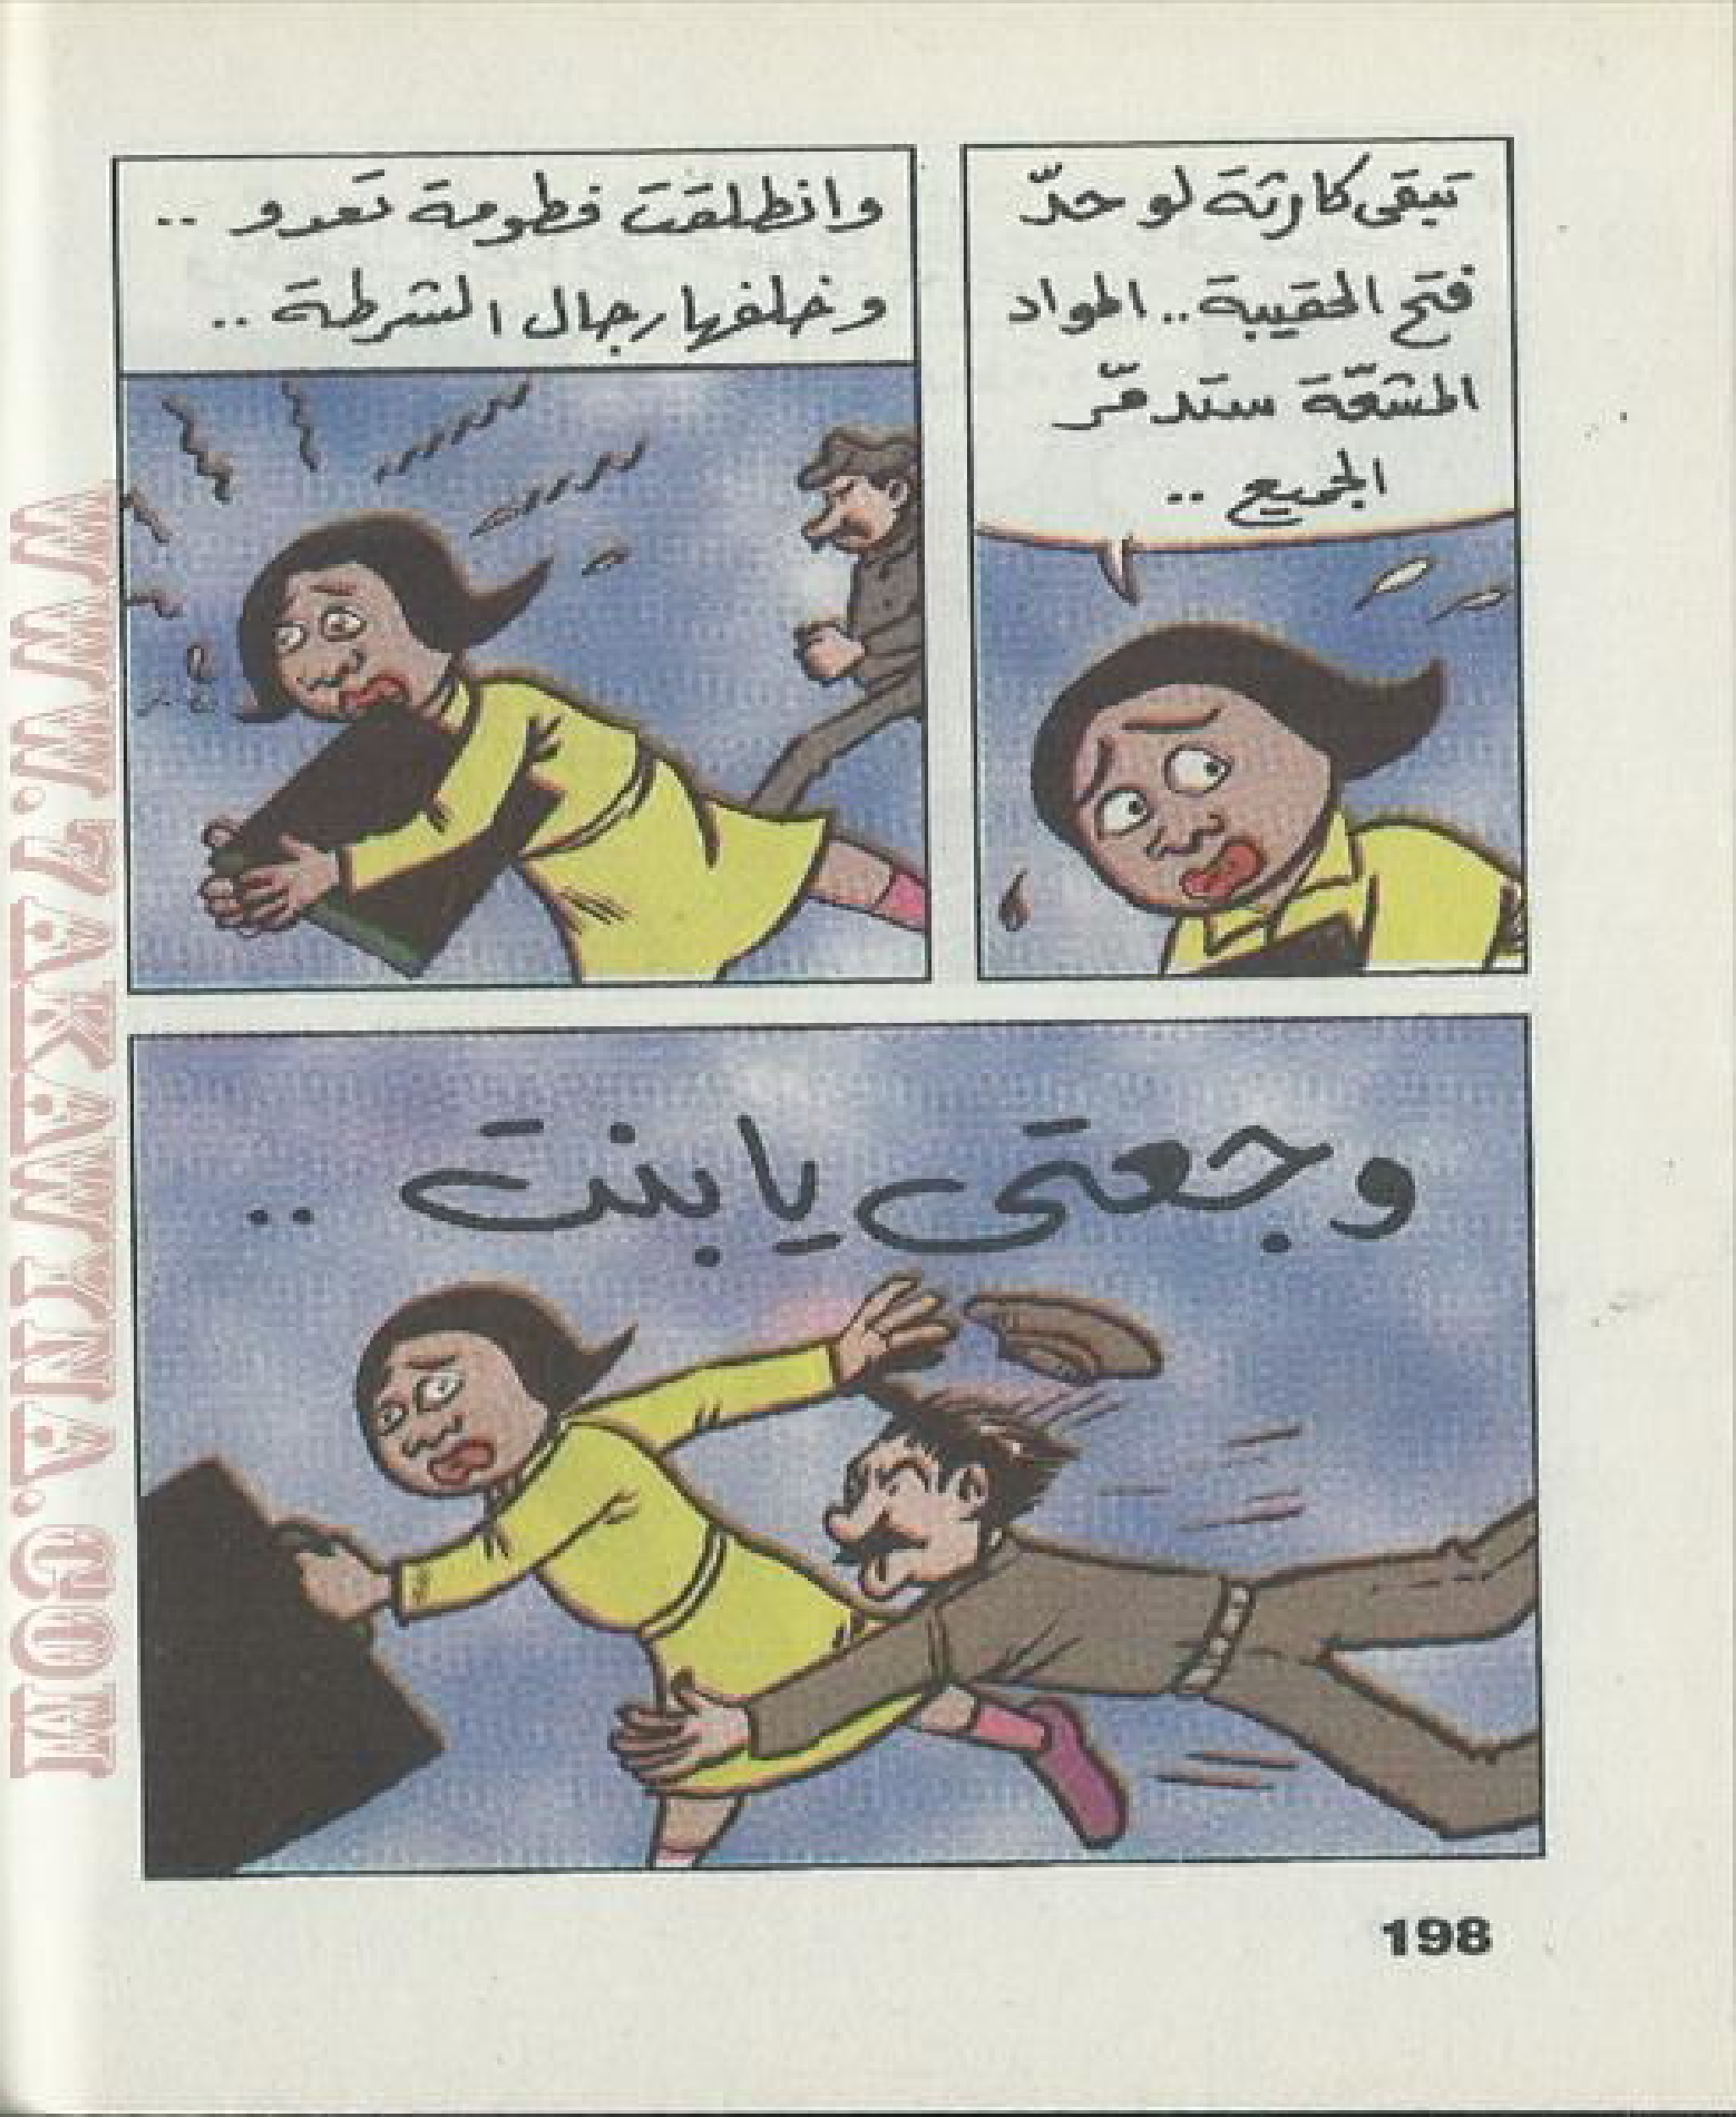 تبقى كارثة لو حدّ
فتح الحقيبة.. المواد
المشعّة ستدمّر
الجميع ..
وانطلقت فطومة تعدو ..
وخلفها رجال الشرطة ..
وجعتى يا بنت ..
198
WWW.7AKAWYNA.COM